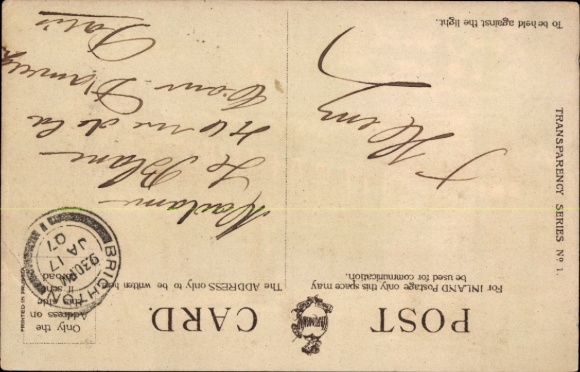 POST CARD.
For INLAND Postage only this space may
be used for communication.
The ADDRESS only to be written here.
Only the
Address on
this side
if sent
abroad
BRIGHTON
9 30 PM
JA 17
07
Madame
Le Blanc
rue de la
Paris
TRANSPARENCY SERIES No 1.
To be held against the light.